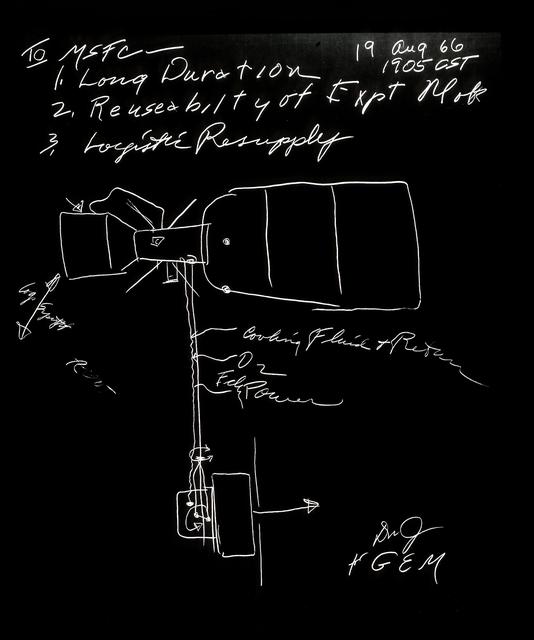 To MSFC —
19 Aug 66
1905 CST
1. Long Duration
2. Reuseability of Expt Mod
3. Logistic Resupply
Cooling Fluid + Return
O2
Power
GEM